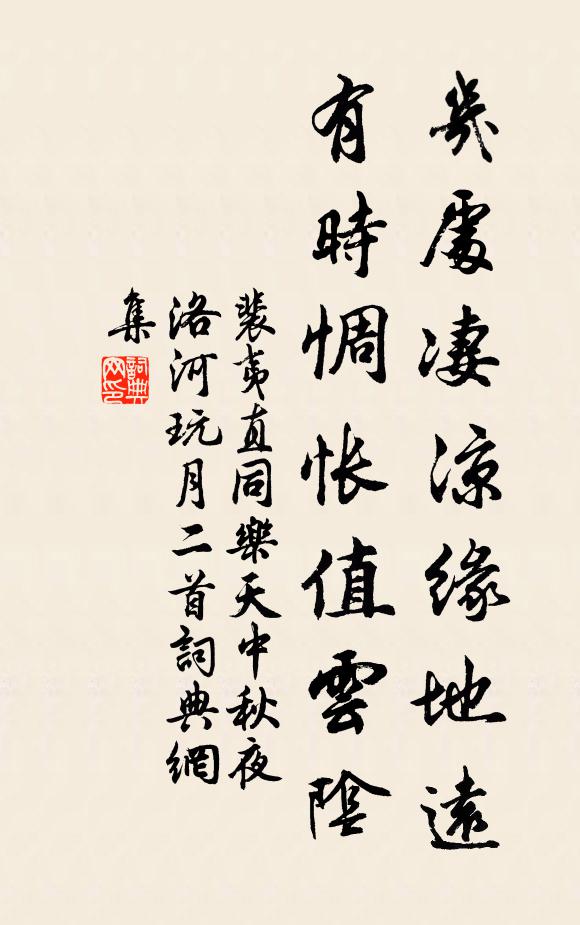 幾處凄涼緣地遠
有時惆悵值雲陰
裴夷直同樂天中秋夜
洛河玩月二首詞典網
集
詞典
网印